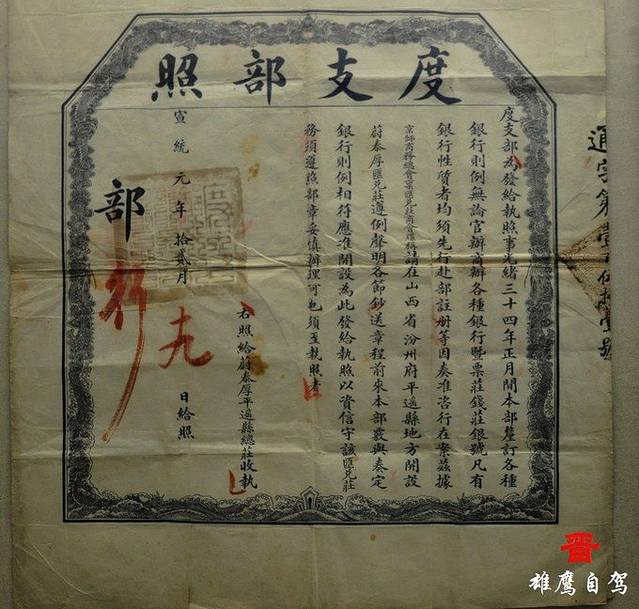 度支部照
度支部為發給執照事光緒三十四年正月間本部釐訂各種
銀行則例無論官辦商辦各種銀行暨票莊錢莊銀號凡有
銀行性質者均須先行赴部註冊等因奏准咨行在案茲據
京師商務總會票匯兌莊商會稱請在山西省汾州府平遙縣地方開設
蔚泰厚匯兌莊遵例聲明各節鈔送章程前來本部覈與奏定
銀行則例相符應准開設為此發給執照以資信守該匯兌莊
務須遵照部章妥慎辦理可也須至執照者
右照給蔚泰厚平遙縣總莊收執
宣統元年拾貳月 九 日給照
部
行
通字第壹百伍拾壹號
晋
雄鹰自驾